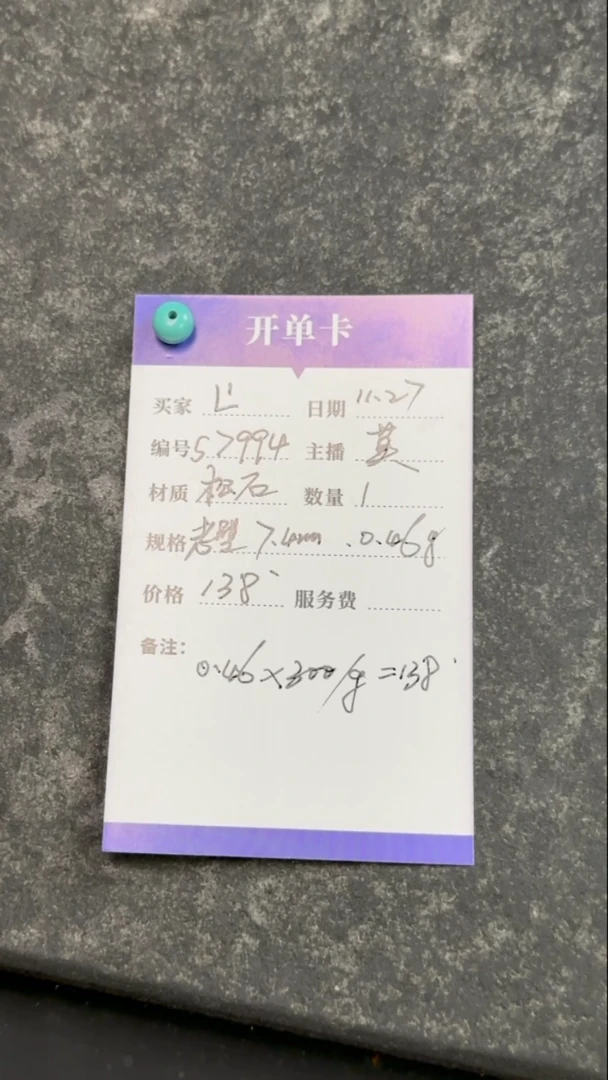 开单卡
买家 L 日期 11.27
编号 57994 主播 英
材质 松石 数量 1
规格 老型 7.4mm .0.46g
价格 138 服务费
备注:
0.46×300/g=138